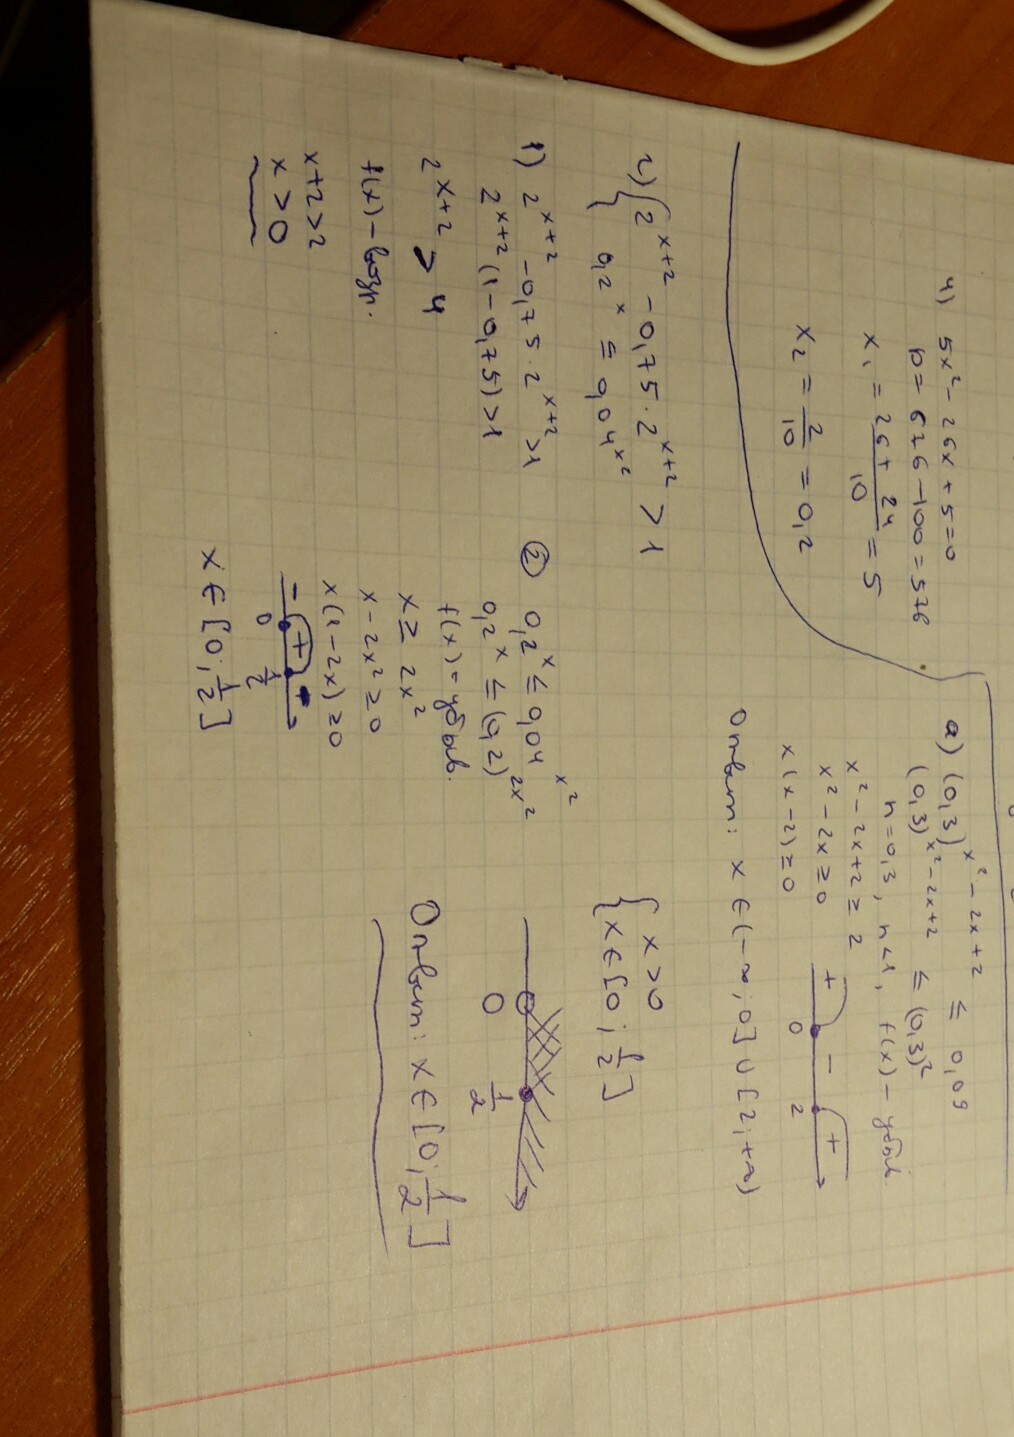 4) 5x² - 26x + 5 = 0
D = 676 - 100 = 576
x₁ = (26 + 24)/10 = 5
x₂ = 2/10 = 0,2
а) (0,3)^(x² - 2x + 2) ≤ 0,09
(0,3)^(x² - 2x + 2) ≤ (0,3)²
n = 0,3, n < 1, f(x) – убыв.
x² - 2x + 2 ≥ 2
x² - 2x ≥ 0
x(x - 2) ≥ 0
+ 0 - 2 +
Ответ: x ∈ (-∞; 0] ∪ [2; +∞)
г) { 2^(x+2) - 0,75 · 2^(x+2) > 1
0,2^x ≤ 0,04^(x²)
1) 2^(x+2) - 0,75 · 2^(x+2) > 1
2^(x+2) (1 - 0,75) > 1
2^(x+2) > 4
f(x) – возр.
x + 2 > 2
x > 0
② 0,2^x ≤ 0,04^(x²)
0,2^x ≤ (0,2)^(2x²)
f(x) = убыв.
x ≥ 2x²
x - 2x² ≥ 0
x(1 - 2x) ≥ 0
- 0 + 1/2
x ∈ [0; 1/2]
{ x > 0
x ∈ [0; 1/2]
0 1/2
Ответ: x ∈ [0; 1/2]